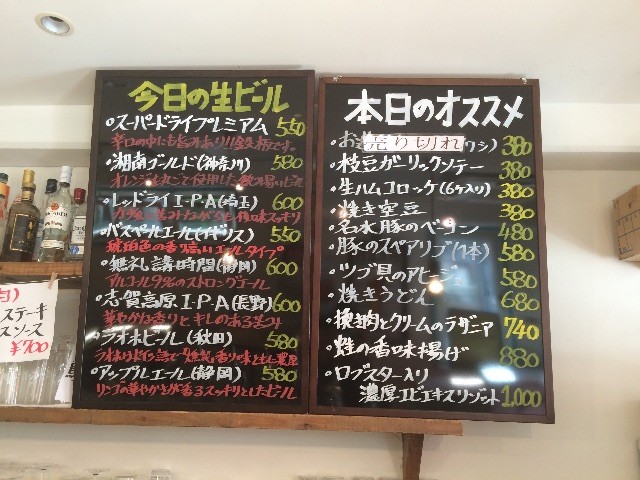 今日の生ビール
・スーパードライプレミアム 550
辛口の中にも旨みあり!
・湘南ゴールド(神奈川) 580
オレンジを丸ごと使用した飲み易いビール
・レッドライI・P・A(埼玉) 600
・バスペールエール(イギリス) 550
琥珀色の香り高いエールタイプ
・無礼講時間(静岡) 600
アルコール9%のストロングエール
・志賀高原I.P.A(長野) 600
華やかな香りとキレのある苦み
・ラオホビール(秋田) 580
・アップルエール(静岡) 580
リンゴの華やかさが香るスッキリとしたビール
本日のオススメ
売り切れ 380
・枝豆ガーリックソテー 380
・生ハムコロッケ(6ヶ入り) 380
・焼き空豆 380
・名水豚のベーコン 480
・豚のスペアリブ(1本) 580
・ツブ貝のアヒージョ 580
・焼きうどん 680
・挽き肉とクリームのラザニア 740
の香味揚げ 880
・ロブスター入り
濃厚エビエキスリゾット 1,000
ステーキ
スソース
¥700